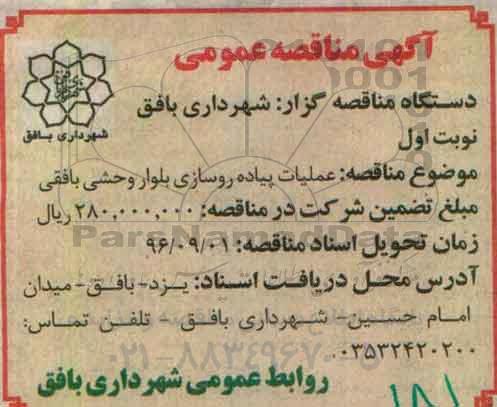 آگهی مناقصه عمومی
شهرداری بافق
دستگاه مناقصه گزار: شهرداری بافق
نوبت اول
موضوع مناقصه: عملیات پیاده روسازی بلوار وحشی بافقی
مبلغ تضمین شرکت در مناقصه: ۲۸۰,۰۰۰,۰۰۰ ریال
زمان تحویل اسناد مناقصه: ۹۶/۰۹/۰۱
آدرس محل دریافت اسناد: یزد- بافق- میدان
امام حسین- شهرداری بافق - تلفن تماس:
۰۳۵۳۲۴۲۰۲۰۰
روابط عمومی شهرداری بافق
ParsNamadData
۰۲۱-۸۸۳۴۹۶۷۰-۵